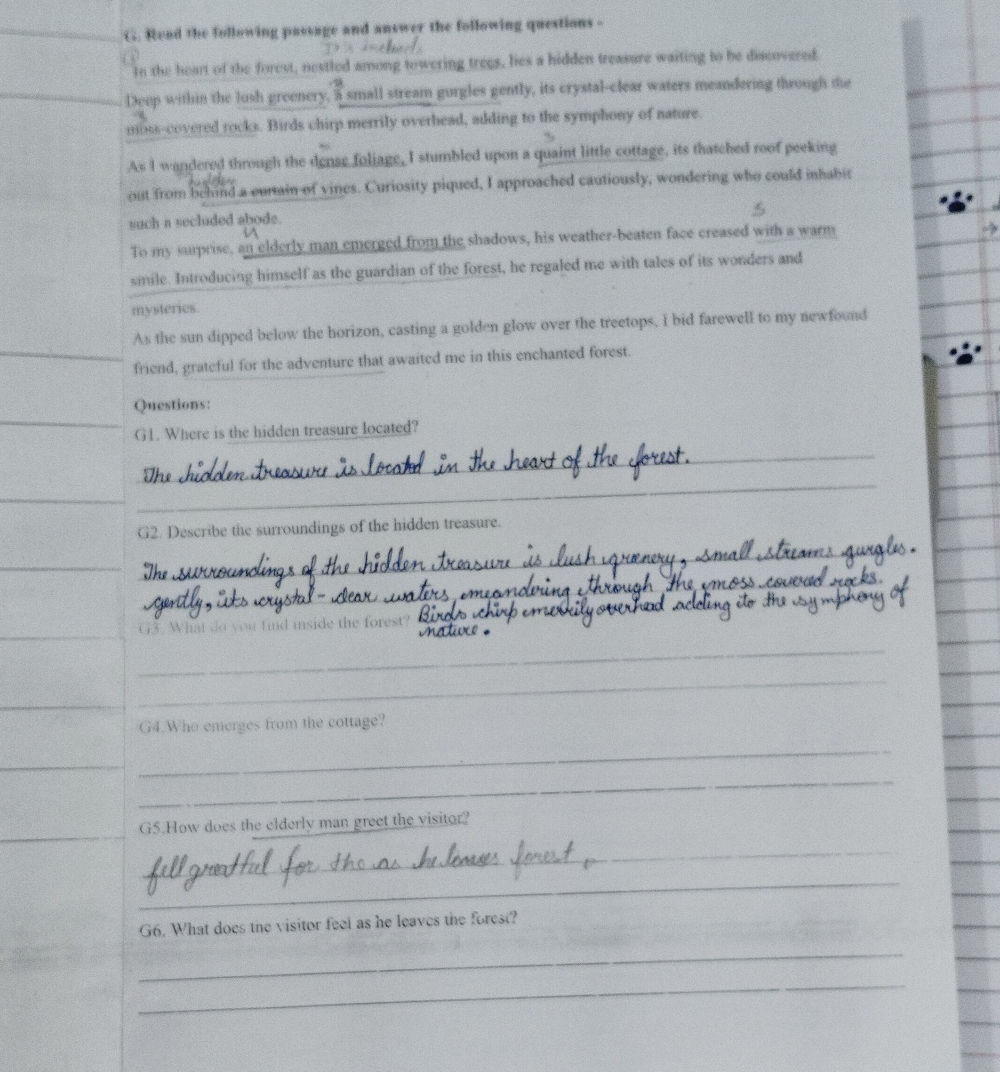 G. Read the following passage and answer the following questions -
In the heart of the forest, nestled among towering trees, lies a hidden treasure waiting to be discovered.
Deep within the lush greenery, a small stream gurgles gently, its crystal-clear waters meandering through the
moss-covered rocks. Birds chirp merrily overhead, adding to the symphony of nature.
As I wandered through the dense foliage, I stumbled upon a quaint little cottage, its thatched roof peeking
out from behind a curtain of vines. Curiosity piqued, I approached cautiously, wondering who could inhabit
such a secluded abode.
To my surprise, an elderly man emerged from the shadows, his weather-beaten face creased with a warm
smile. Introducing himself as the guardian of the forest, he regaled me with tales of its wonders and
mysteries.
As the sun dipped below the horizon, casting a golden glow over the treetops, i bid farewell to my newfound
friend, grateful for the adventure that awaited me in this enchanted forest.
Questions:
G1. Where is the hidden treasure located?
The hidden treasure is located in the heart of the forest.
G2. Describe the surroundings of the hidden treasure.
The surroundings of the hidden treasure is lush greenery, small streams gurgles.
gently, its crystal-clear waters meandering through the moss covered rocks.
G3. What do you find inside the forest? Birds chirp merrily overhead adding to the symphony of
nature.
G4.Who emerges from the cottage?
G5.How does the elderly man greet the visitor?
fell greatful for the as he leaves forest.
G6. What does the visitor feel as he leaves the forest?